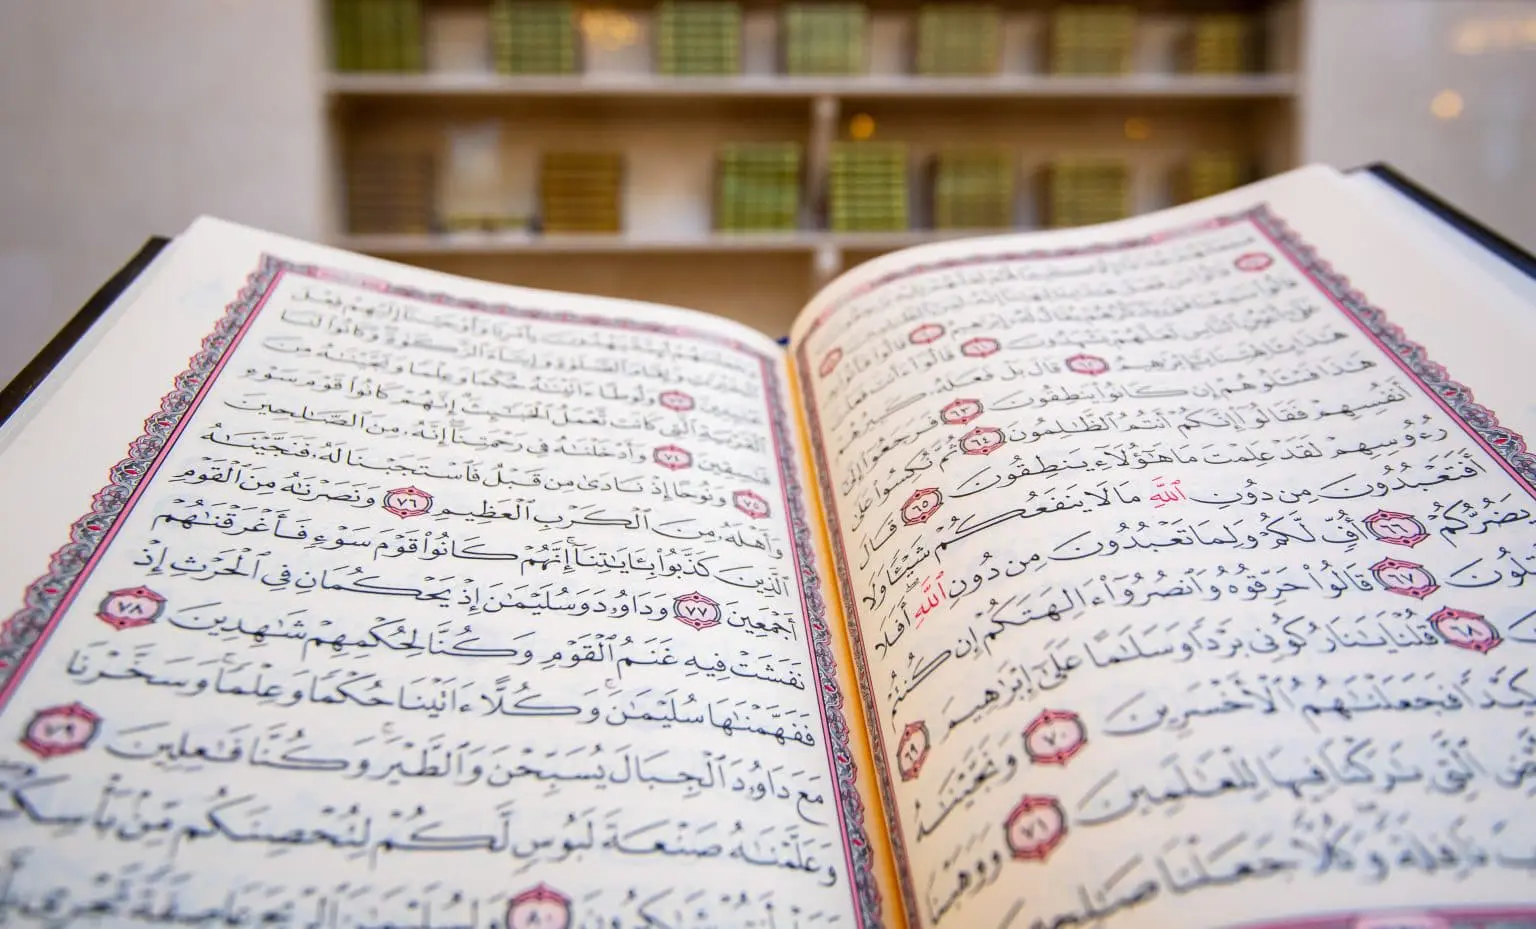 عَلَىٰٓ أَعْيُنِ ٱلنَّاسِ لَعَلَّهُمْ يَشْهَدُونَ ٦١ قَالُوٓا۟ ءَأَنتَ فَعَلْتَ
هَٰذَا بِـَٔالِهَتِنَا يَٰٓإِبْرَٰهِيمُ ٦٢ قَالَ بَلْ فَعَلَهُۥ كَبِيرُهُمْ
هَٰذَا فَسْـَٔلُوهُمْ إِن كَانُوا۟ يَنطِقُونَ ٦٣ فَرَجَعُوٓا۟ إِلَىٰٓ
أَنفُسِهِمْ فَقَالُوٓا۟ إِنَّكُمْ أَنتُمُ ٱلظَّٰلِمُونَ ٦٤ ثُمَّ نُكِسُوا۟ عَلَىٰ
رُءُوسِهِمْ لَقَدْ عَلِمْتَ مَا هَٰٓؤُلَآءِ يَنطِقُونَ ٦٥ قَالَ
أَفَتَعْبُدُونَ مِن دُونِ ٱللَّهِ مَا لَا يَنفَعُكُمْ شَيْـًٔا وَلَا
يَضُرُّكُمْ ٦٦ أُفٍّ لَّكُمْ وَلِمَا تَعْبُدُونَ مِن دُونِ ٱللَّهِ أَفَلَا
قِلُونَ ٦٧ قَالُوا۟ حَرِّقُوهُ وَٱنصُرُوٓا۟ ءَالِهَتَكُمْ إِن كُنتُمْ
٦٨ قُلْنَا يَٰنَارُ كُونِى بَرْدًا وَسَلَٰمًا عَلَىٰٓ إِبْرَٰهِيمَ ٦٩
كَيْدًا فَجَعَلْنَٰهُمُ ٱلْأَخْسَرِينَ ٧٠ وَنَجَّيْنَٰهُ
ٱلَّتِى بَٰرَكْنَا فِيهَا لِلْعَٰلَمِينَ ٧١ وَوَهَبْنَا
نَافِلَةً وَكُلًّا جَعَلْنَا صَٰلِحِينَ
ٱلْخَيْرَٰتِ وَإِقَامَ ٱلصَّلَوٰةِ وَإِيتَآءَ ٱلزَّكَوٰةِ وَكَانُوا۟ لَنَا
عَٰبِدِينَ ٧٣ وَلُوطًا ءَاتَيْنَٰهُ حُكْمًا وَعِلْمًا وَنَجَّيْنَٰهُ مِنَ
ٱلْقَرْيَةِ ٱلَّتِى كَانَت تَّعْمَلُ ٱلْخَبَٰٓئِثَ إِنَّهُمْ كَانُوا۟ قَوْمَ سَوْءٍ
فَٰسِقِينَ ٧٤ وَأَدْخَلْنَٰهُ فِى رَحْمَتِنَآ إِنَّهُۥ مِنَ ٱلصَّٰلِحِينَ
٧٥ وَنُوحًا إِذْ نَادَىٰ مِن قَبْلُ فَٱسْتَجَبْنَا لَهُۥ فَنَجَّيْنَٰهُ
وَأَهْلَهُۥ مِنَ ٱلْكَرْبِ ٱلْعَظِيمِ ٧٦ وَنَصَرْنَٰهُ مِنَ ٱلْقَوْمِ
ٱلَّذِينَ كَذَّبُوا۟ بِـَٔايَٰتِنَآ إِنَّهُمْ كَانُوا۟ قَوْمَ سَوْءٍ فَأَغْرَقْنَٰهُمْ
أَجْمَعِينَ ٧٧ وَدَاوُۥدَ وَسُلَيْمَٰنَ إِذْ يَحْكُمَانِ فِى ٱلْحَرْثِ إِذْ
نَفَشَتْ فِيهِ غَنَمُ ٱلْقَوْمِ وَكُنَّا لِحُكْمِهِمْ شَٰهِدِينَ ٧٨
فَفَهَّمْنَٰهَا سُلَيْمَٰنَ وَكُلًّا ءَاتَيْنَا حُكْمًا وَعِلْمًا وَسَخَّرْنَا
مَعَ دَاوُۥدَ ٱلْجِبَالَ يُسَبِّحْنَ وَٱلطَّيْرَ وَكُنَّا فَٰعِلِينَ ٧٩
وَعَلَّمْنَٰهُ صَنْعَةَ لَبُوسٍ لَّكُمْ لِتُحْصِنَكُم مِّنۢ بَأْسِكُمْ
أَنتُمْ شَٰكِرُونَ ٨٠ وَلِسُلَيْمَٰنَ ٱلرِّيحَ عَاصِفَةً تَجْرِى